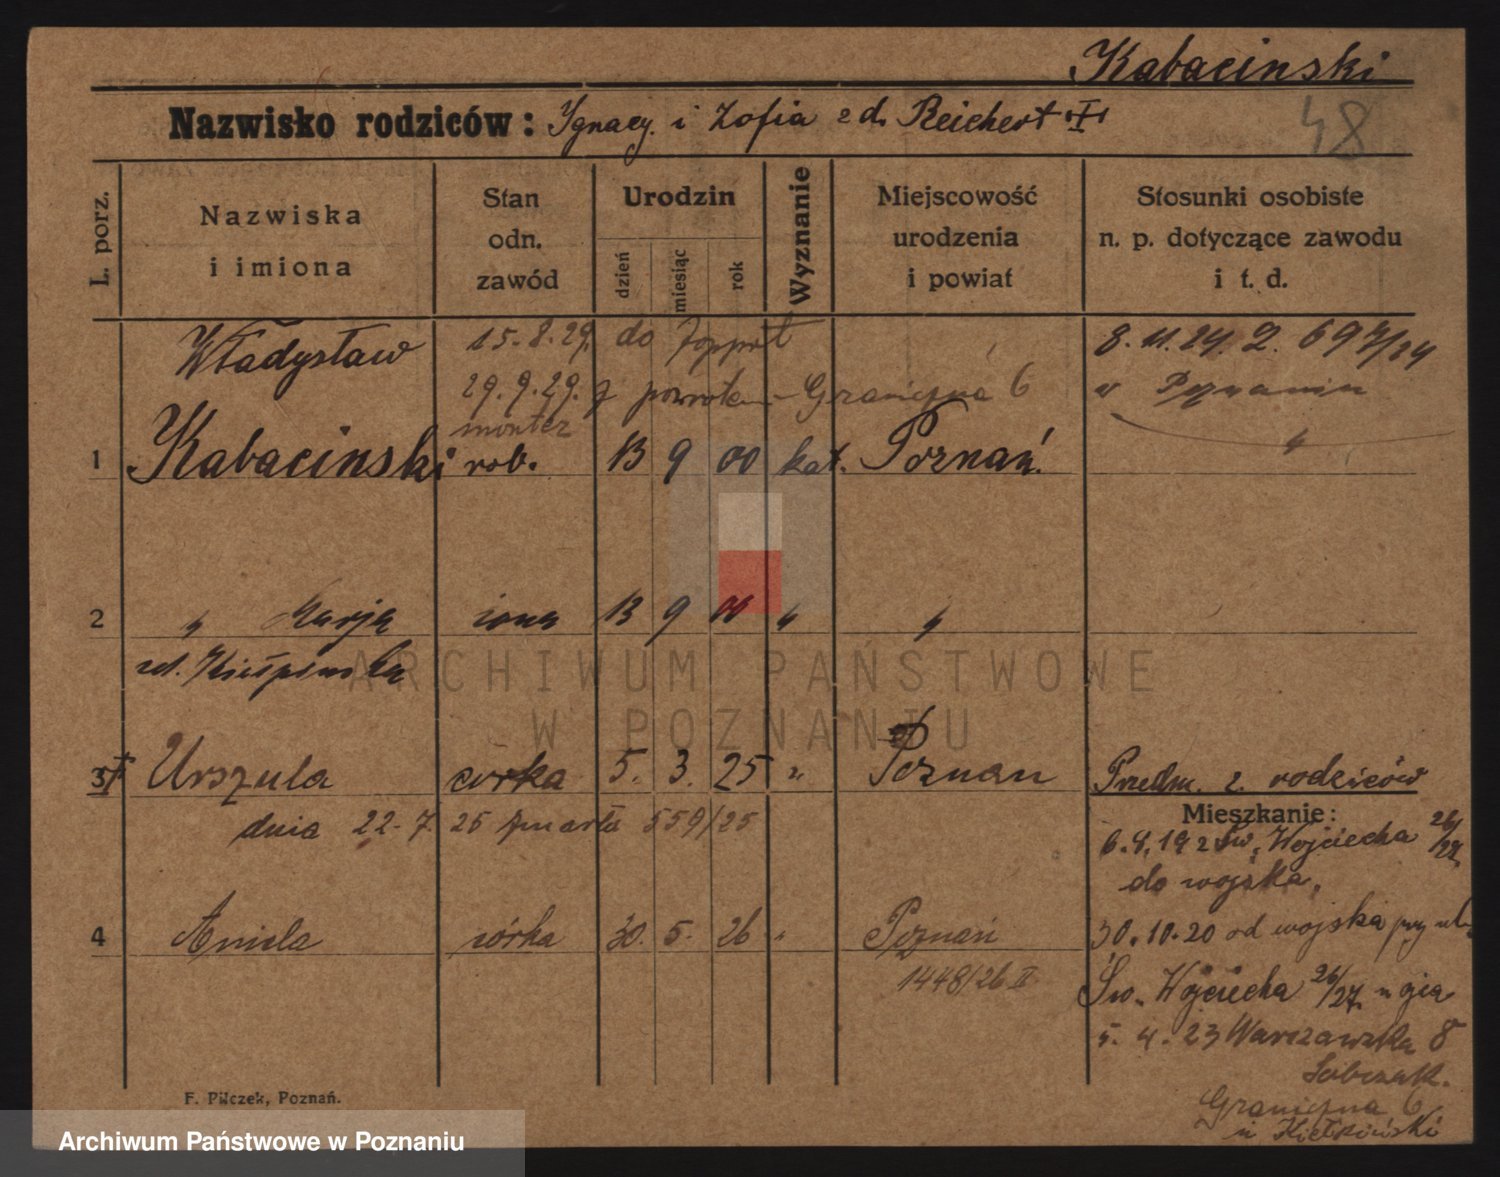 Kabacinski
Nazwisko rodziców: Ignacy i Zofia z d. Reichert
48
L. porz.
Nazwiska
i imiona
Stan
odn.
zawód
Urodzin
dzień
miesiąc
rok
Wyznanie
Miejscowość
urodzenia
i powiat
Stosunki osobiste
n. p. dotyczące zawodu
i t. d.
Władysław 15.8.29. do Zoppot 8.11.24. 2. 697/24
29.9.29. z powrotem Graniczna 6 w Poznaniu
monter
1 Kabacinski rob. 13 9 00 kat. Poznań.
2 " Marja żona 13 9 00 " "
3 Urszula córka 5. 3. 25 " Poznan Przedm. z. rodziców
dnia 22-7. 25 zmarła 559/25
Mieszkanie:
6.4.192 Św. Wojciecha 26/27
do wojska.
4 Aniela córka 30. 5. 26 " Poznań
30.10.20 od wojska przy ul.
1448/26 II
Św. Wojciecha 26/27 u ojca
5.4.23 Warszawska 8
Sobczak.
Graniczna 6
F. Pilczek, Poznań.
ARCHIWUM PAŃSTWOWE
W POZNANIU
Archiwum Państwowe w Poznaniu